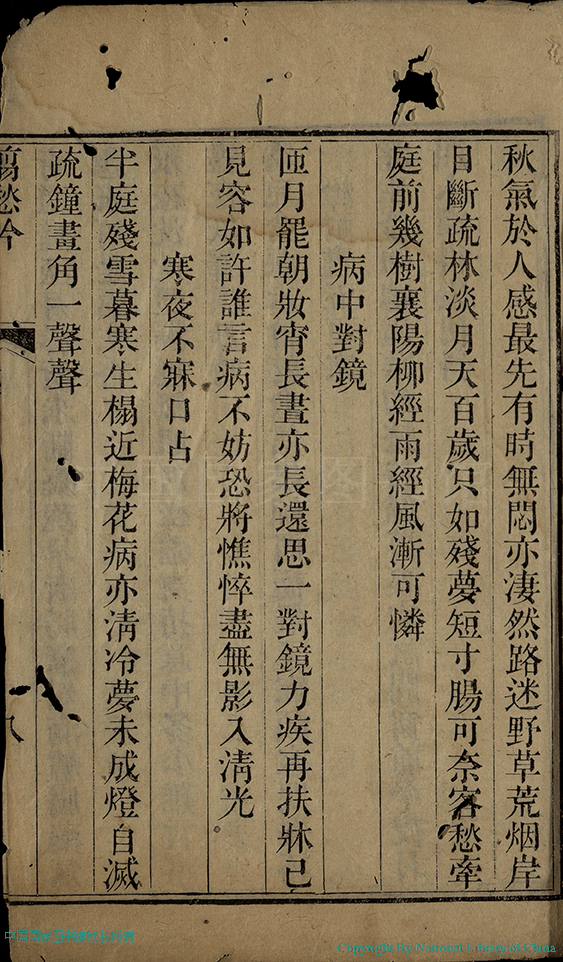 秋氣於人感最先有時無悶亦凄然路迷野草荒烟岸
目斷疏林淡月天百歲只如殘夢短寸腸可柰客愁牽
庭前幾樹襄陽柳經雨經風漸可憐
病中對鏡
匝月罷朝妝宵長晝亦長還思一對鏡力疾再扶牀已
見容如許誰言病不妨恐將憔悴盡無影入清光
寒夜不寐口占
半庭殘雪暮寒生榻近梅花病亦清冷夢未成燈自滅
疏鐘畫角一聲聲
翦愁吟
八
Copyright By National Library of China